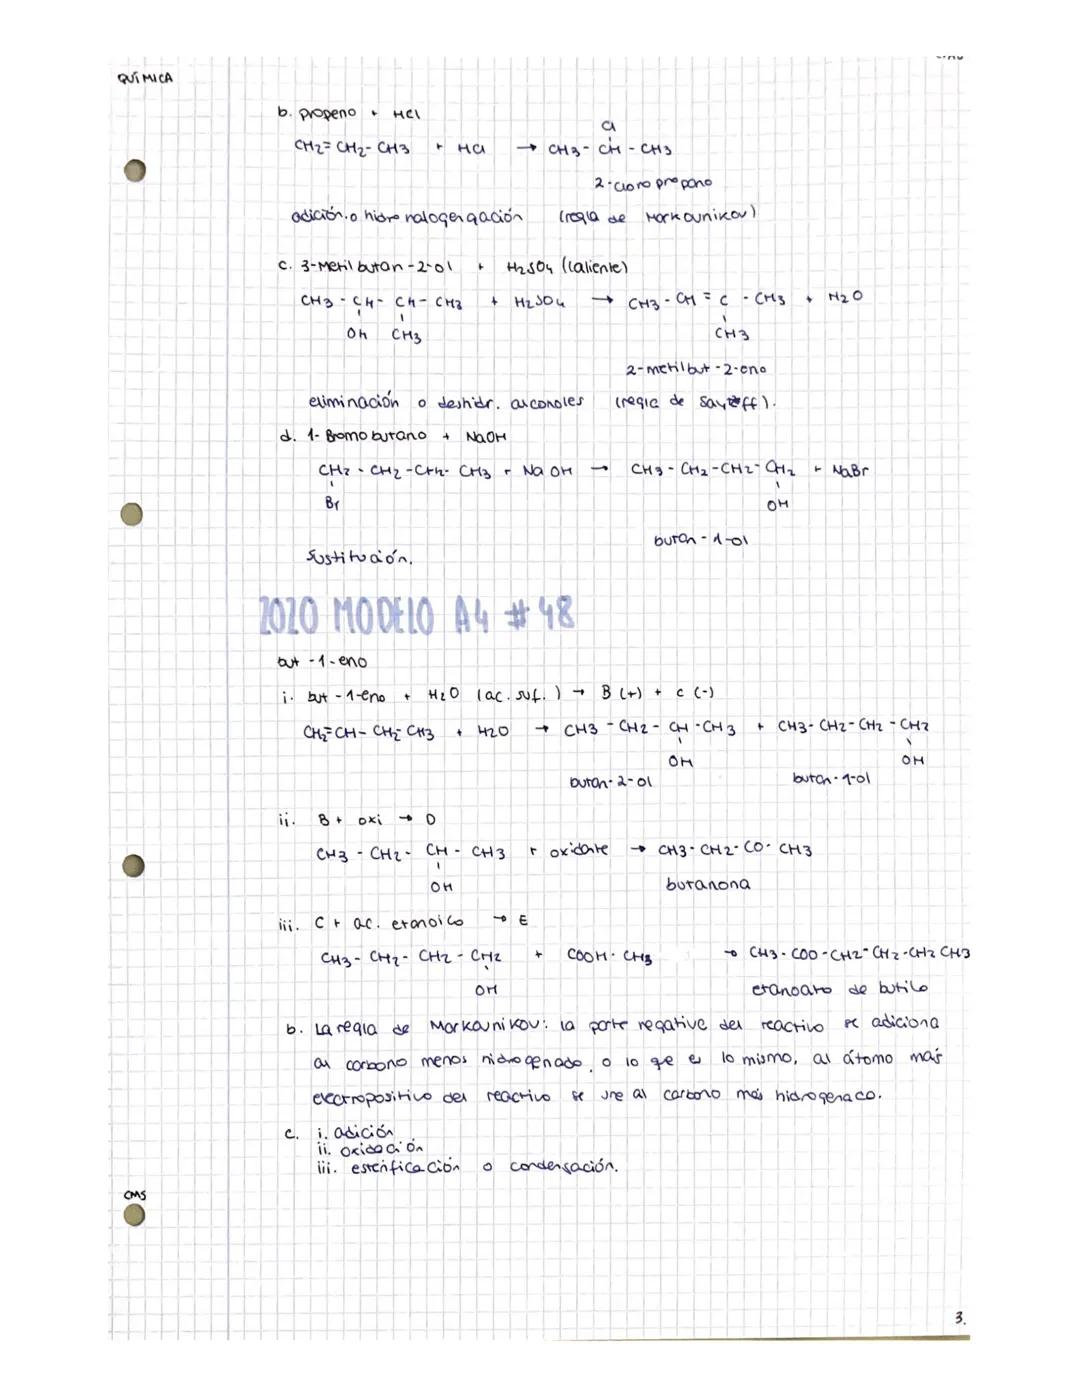 QUÍMICA
b. propeno + HCl
Cl
CH2=CH2-CH3 + HCl → CH3-CH-CH3
2-cloropropano
adición o hidrohalogengación (regla de Markovnikov)
c. 3-Metilbutan-2-ol + H2SO4 (caliente)
CH3-CH-CH-CH3 + H2SO4 → CH3-CH=C-CH3 + H2O
OH CH3 CH3
2-metilbut-2-eno
eliminación o deshidr. alcoholes (regla de Sayteff).
d. 1-Bromobutano + NaOH
CH2-CH2-CH2-CH3 + NaOH → CH3-CH2-CH2-CH2 + NaBr
Br OH
butan-1-ol
Sustitución.
2020 MODELO A4 #48
but-1-eno
i. but-1-eno + H2O (ac. sulf.) → B (+) + C (-)
CH2=CH-CH2-CH3 + H2O → CH3-CH2-CH-CH3 + CH3-CH2-CH2-CH2
OH OH
butan-2-ol butan-1-ol
ii. B + oxi → D
CH3-CH2-CH-CH3 + oxidante → CH3-CH2-CO-CH3
OH butanona
iii. C + ac. etanoico → E
CH3-CH2-CH2-CH2 + COOH-CH3 → CH3-COO-CH2-CH2-CH2 CH3
OH etanoato de butilo
b. La regla de Markovnikov: la parte negative del reactivo se adiciona
al carbono menos hidrogenado, o lo que es lo mismo, al átomo más
electropositivo del reactivo se une al carbono más hidrogenaco.
c. i. adición
ii. oxidación
iii. esterificación o condensación.
CMS
3.